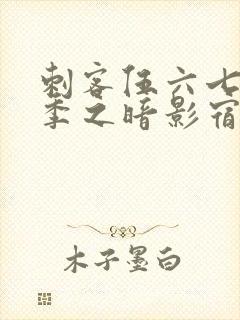 刺客伍六七
季之暗影宿
木子墨白